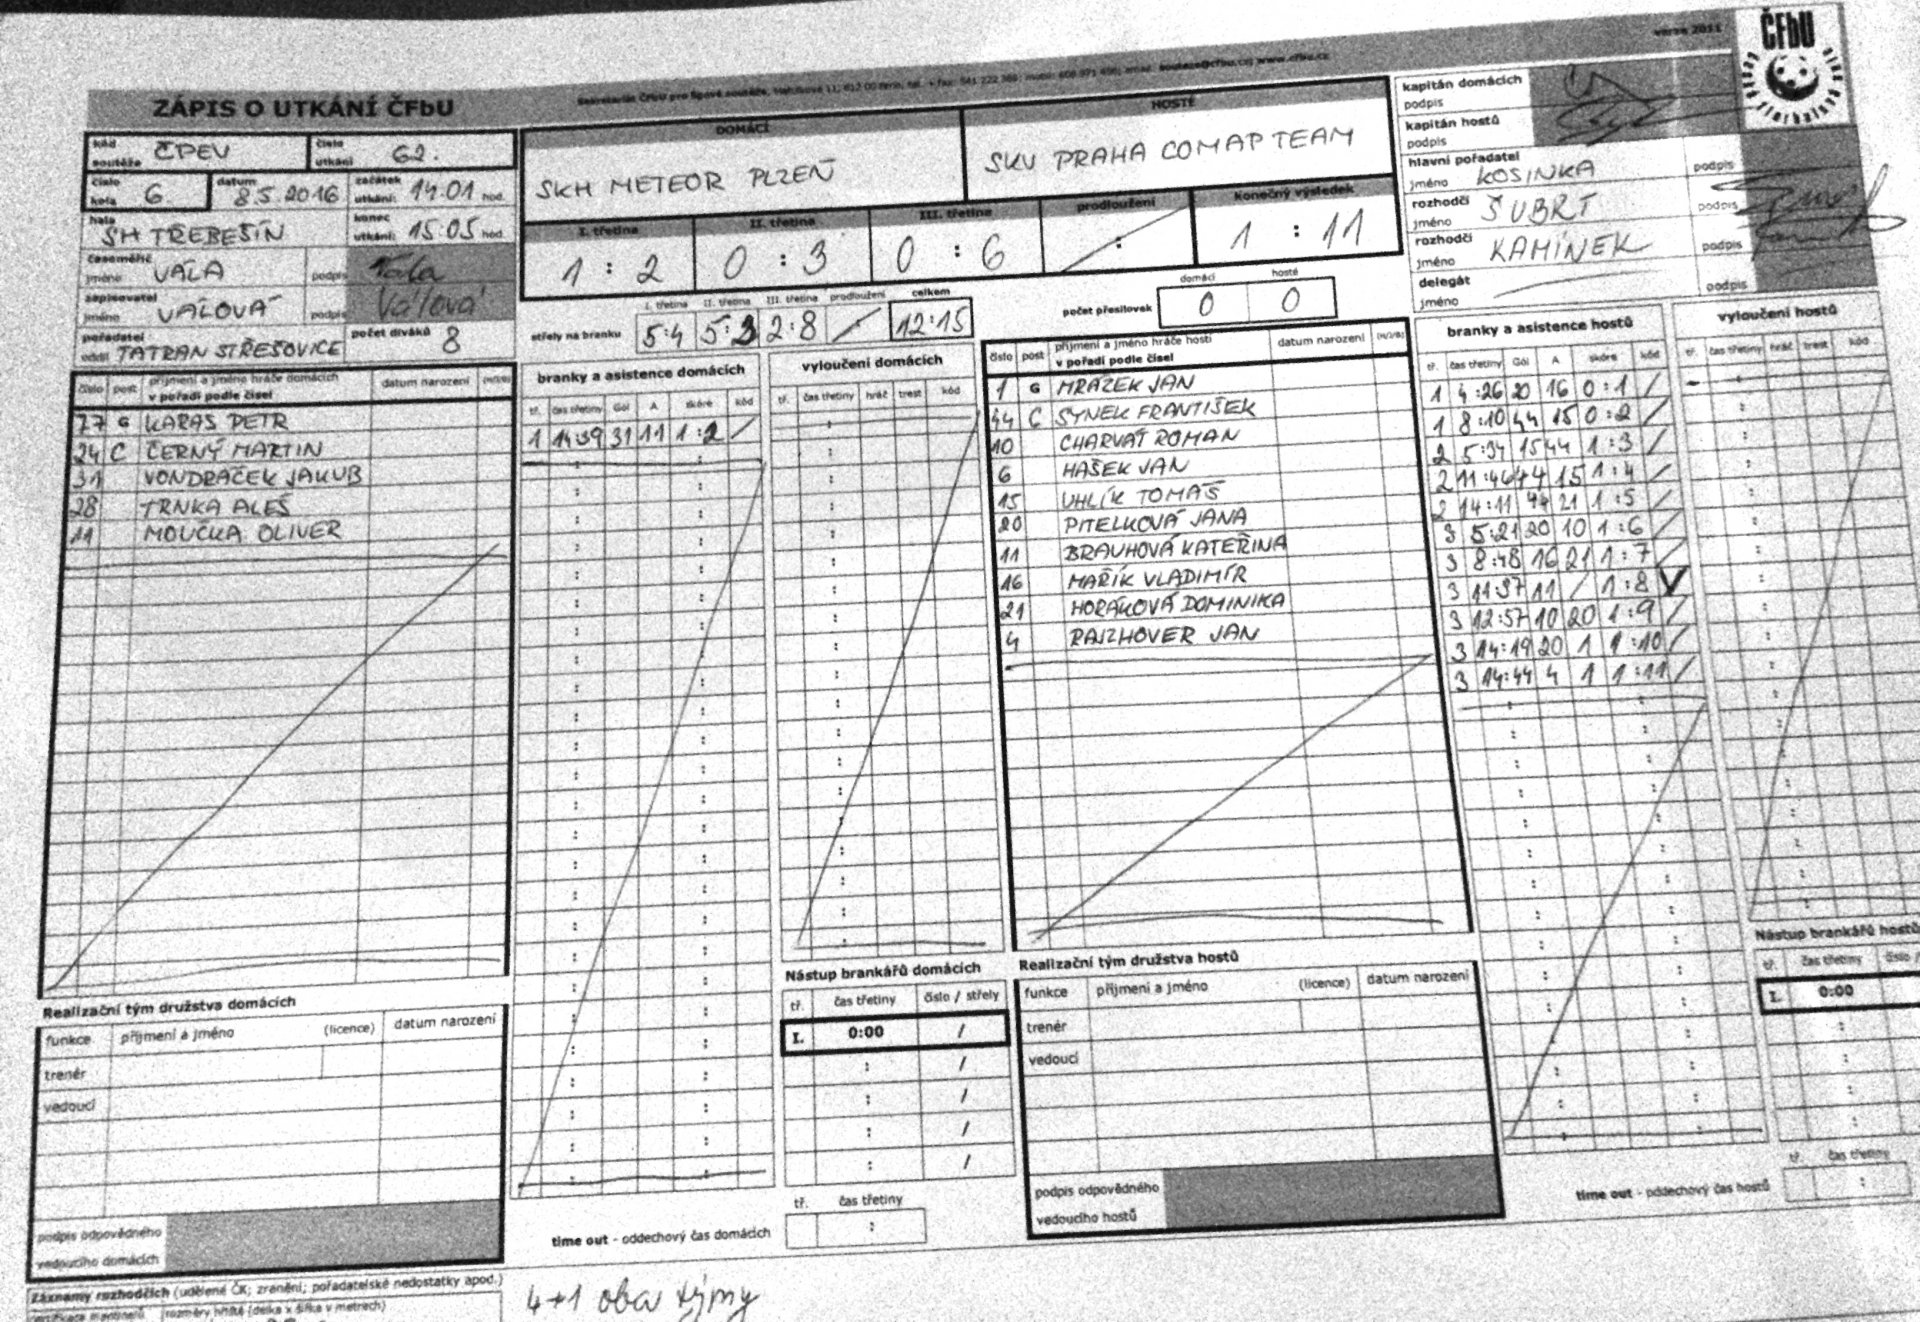 verze 2011
ČFbU
ZÁPIS O UTKÁNÍ ČFbU
kód soutěže ČPEV
číslo utkání 62.
číslo kola 6
datum 8.5.2016
začátek utkání: 14.01 hod.
hala SH TŘEBEŠÍN
konec utkání: 15.05 hod.
časoměřič jméno VÁLA podpis Vála
zapisovatel jméno VÁLOVÁ podpis Válová
pořadatel oddíl TATRAN STŘEŠOVICE
počet diváků 8
DOMÁCÍ
SKH METEOR PLZEŇ
HOSTÉ
SKV PRAHA COMAP TEAM
I. třetina II. třetina III. třetina prodloužení Konečný výsledek
1 : 2 0 : 3 0 : 6 : 1 : 11
I. třetina II. třetina III. třetina prodloužení celkem
střely na branku 5:4 5:3 2:8 12:15
domácí hosté
počet přesilovek 0 0
kapitán domácích podpis
kapitán hostů podpis
hlavní pořadatel jméno KOSINKA podpis
rozhodčí jméno ŠUBRT podpis
rozhodčí jméno KAMÍNEK podpis
delegát jméno podpis
číslo post příjmení a jméno hráče domácích v pořadí podle čísel datum narození
77 G KARAS PETR
24 C ČERNÝ MARTIN
31 VONDRÁČEK JAKUB
28 TRNKA ALEŠ
11 MOUČKA OLIVER
branky a asistence domácích
tř. čas třetiny Gól A skóre kód
1 14:39 31 11 1:2 /
vyloučení domácích
tř. čas třetiny hráč trest kód
číslo post příjmení a jméno hráče hostí v pořadí podle čísel datum narození
1 G MRÁZEK JAN
44 C SYNEK FRANTIŠEK
10 CHARVÁT ROMAN
6 HAŠEK JAN
15 UHLÍK TOMÁŠ
20 PITELKOVÁ JANA
11 BRAUHOVÁ KATEŘINA
16 MAŘÍK VLADIMÍR
21 HORÁKOVÁ DOMINIKA
4 RAJZHOVER JAN
branky a asistence hostů
tř. čas třetiny Gól A skóre kód
1 4:26 20 16 0:1 /
1 8:10 44 15 0:2 /
2 5:34 15 44 1:3 /
2 11:46 44 15 1:4 /
2 14:11 44 21 1:5 /
3 5:21 20 10 1:6 /
3 8:48 16 21 1:7 /
3 11:37 11 / 1:8 V
3 12:57 10 20 1:9 /
3 14:19 20 1 1:10 /
3 14:44 4 1 1:11 /
vyloučení hostů
tř. čas třetiny hráč trest kód
Realizační tým družstva domácích
funkce příjmení a jméno (licence) datum narození
trenér
vedoucí
podpis odpovědného vedoucího domácích
Nástup brankářů domácích
tř. čas třetiny číslo / střely
I. 0:00 /
tř. čas třetiny
time out - oddechový čas domácích :
Realizační tým družstva hostů
funkce příjmení a jméno (licence) datum narození
trenér
vedoucí
podpis odpovědného vedoucího hostů
Nástup brankářů hostů
tř. čas třetiny číslo /
I. 0:00
tř. čas třetiny
time out - oddechový čas hostů :
Záznamy rozhodčích (udělené ČK; zranění; pořadatelské nedostatky apod.)
rozměry hřiště (délka x šířka v metrech)
4+1 oba týmy